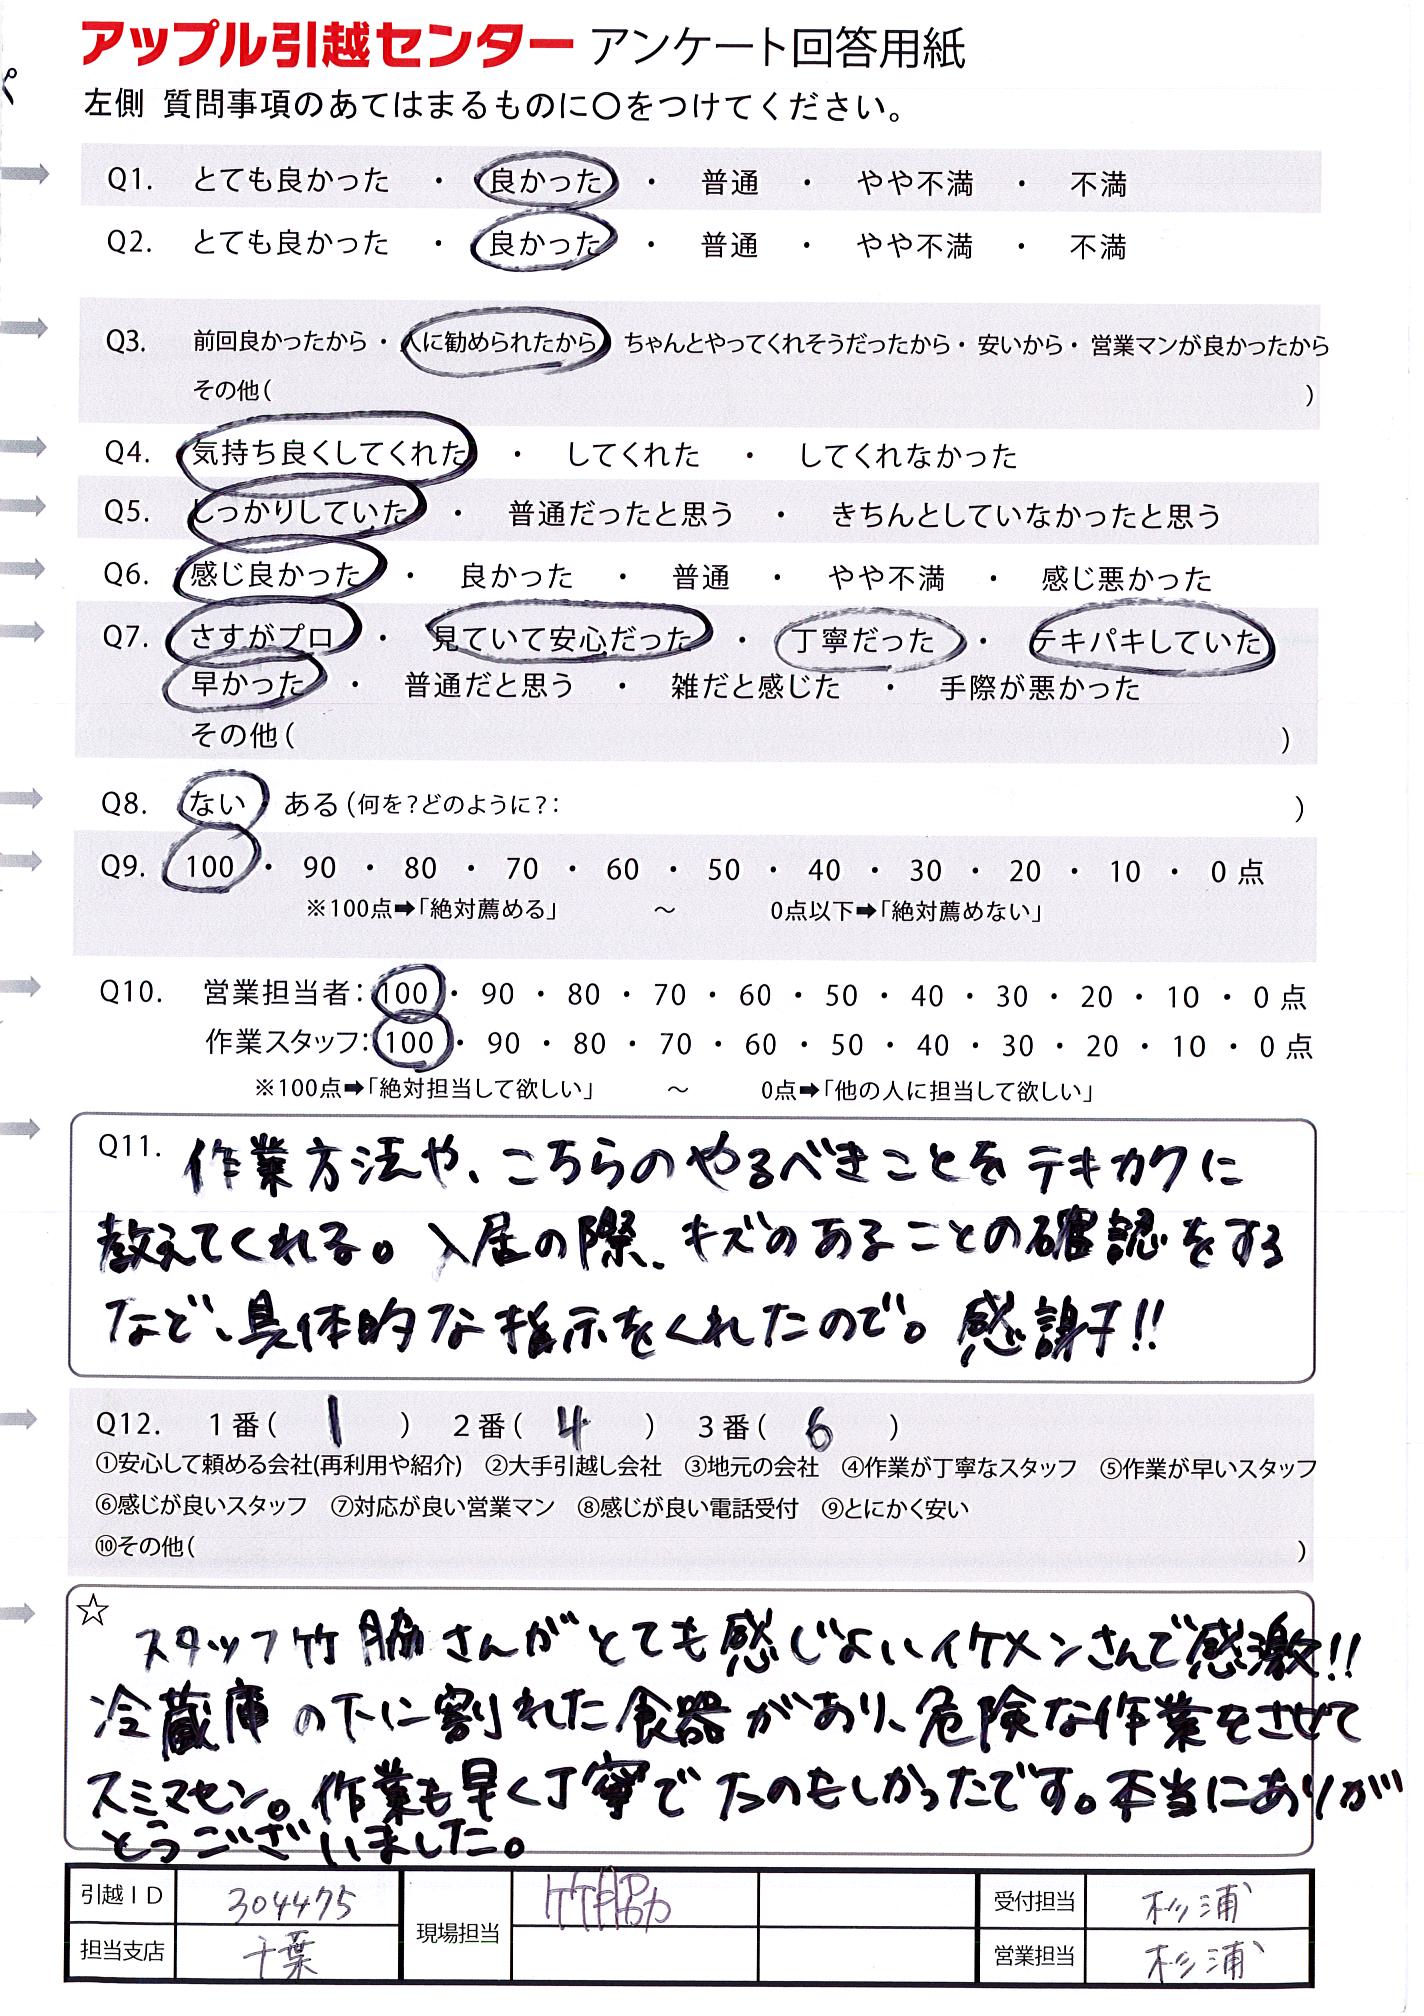 アップル引越センター アンケート回答用紙
左側 質問事項のあてはまるものに〇をつけてください。
Q1. とても良かった ・ 良かった ・ 普通 ・ やや不満 ・ 不満
Q2. とても良かった ・ 良かった ・ 普通 ・ やや不満 ・ 不満
Q3. 前回良かったから・人に勧められたから ちゃんとやってくれそうだったから・安いから・営業マンが良かったから
その他( )
Q4. 気持ち良くしてくれた ・ してくれた ・ してくれなかった
Q5. しっかりしていた ・ 普通だったと思う ・ きちんとしていなかったと思う
Q6. 感じ良かった ・ 良かった ・ 普通 ・ やや不満 ・ 感じ悪かった
Q7. さすがプロ ・ 見ていて安心だった ・ 丁寧だった ・ テキパキしていた
早かった ・ 普通だと思う ・ 雑だと感じた ・ 手際が悪かった
その他( )
Q8. ない ・ ある(何を?どのように?: )
Q9. 100 ・ 90 ・ 80 ・ 70 ・ 60 ・ 50 ・ 40 ・ 30 ・ 20 ・ 10 ・ 0 点
※100点➡「絶対薦める」 ～ 0点以下➡「絶対薦めない」
Q10. 営業担当者: 100 ・ 90 ・ 80 ・ 70 ・ 60 ・ 50 ・ 40 ・ 30 ・ 20 ・ 10 ・ 0 点
作業スタッフ: 100 ・ 90 ・ 80 ・ 70 ・ 60 ・ 50 ・ 40 ・ 30 ・ 20 ・ 10 ・ 0 点
※100点➡「絶対担当して欲しい」 ～ 0点➡「他の人に担当して欲しい」
Q11. 作業方法や、こちらのやるべきことをテキカクに
教えてくれる。入居の際、キズのあることの確認をする
など、具体的な指示をくれたので。感謝す!!
Q12. 1番( 1 ) 2番( 4 ) 3番( 6 )
①安心して頼める会社(再利用や紹介) ②大手引越し会社 ③地元の会社 ④作業が丁寧なスタッフ ⑤作業が早いスタッフ
⑥感じが良いスタッフ ⑦対応が良い営業マン ⑧感じが良い電話受付 ⑨とにかく安い
⑩その他( )
☆
スタッフ竹脇さんがとても感じよいイケメンさんで感激!!
冷蔵庫の下に割れた食器があり、危険な作業をさせて
スミマセン。作業も早く丁寧でたのもしかったです。本当にありが
とうございました。
引越ID 304475 現場担当 竹脇 受付担当 杉浦
担当支店 千葉 営業担当 杉浦